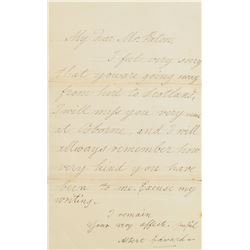 My Dear Mr.
I feel very sorry
that you are going away
from here to Scotland,
I will miss you very
at Osborne, and I will
allways remember how
very kind you have
been to me. Excuse my
writing.
I remain
your very affect.